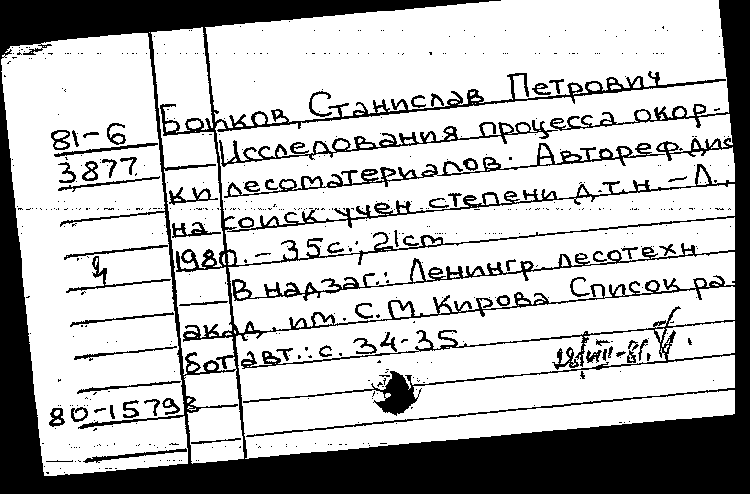 81-6
3877
Бойков, Станислав Петрович
Исследования процесса окор-
ки лесоматериалов. Автореф. дис
на соиск. учен. степени д.т.н. - Л.,
1980. - 35 с.; 21 cm
В надзаг.: Ленингр. лесотехн
акад. им. С.М. Кирова Список ра-
бот авт.: с. 34-35.
80-15793